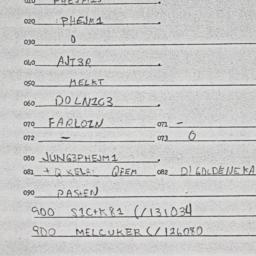 020 PHEJM1
030 0
040 AJT3R
050 MELKT
060 DOLNZG3
070 FARLOZN 071 -
072 - 073 0
080 JUNG3PHEJM1
081 + Q XELR: QFEM 082 D!GOLDENEKA
090 PASEN
900 S1C+K81 (/131034
900 MELCUKER (/126080